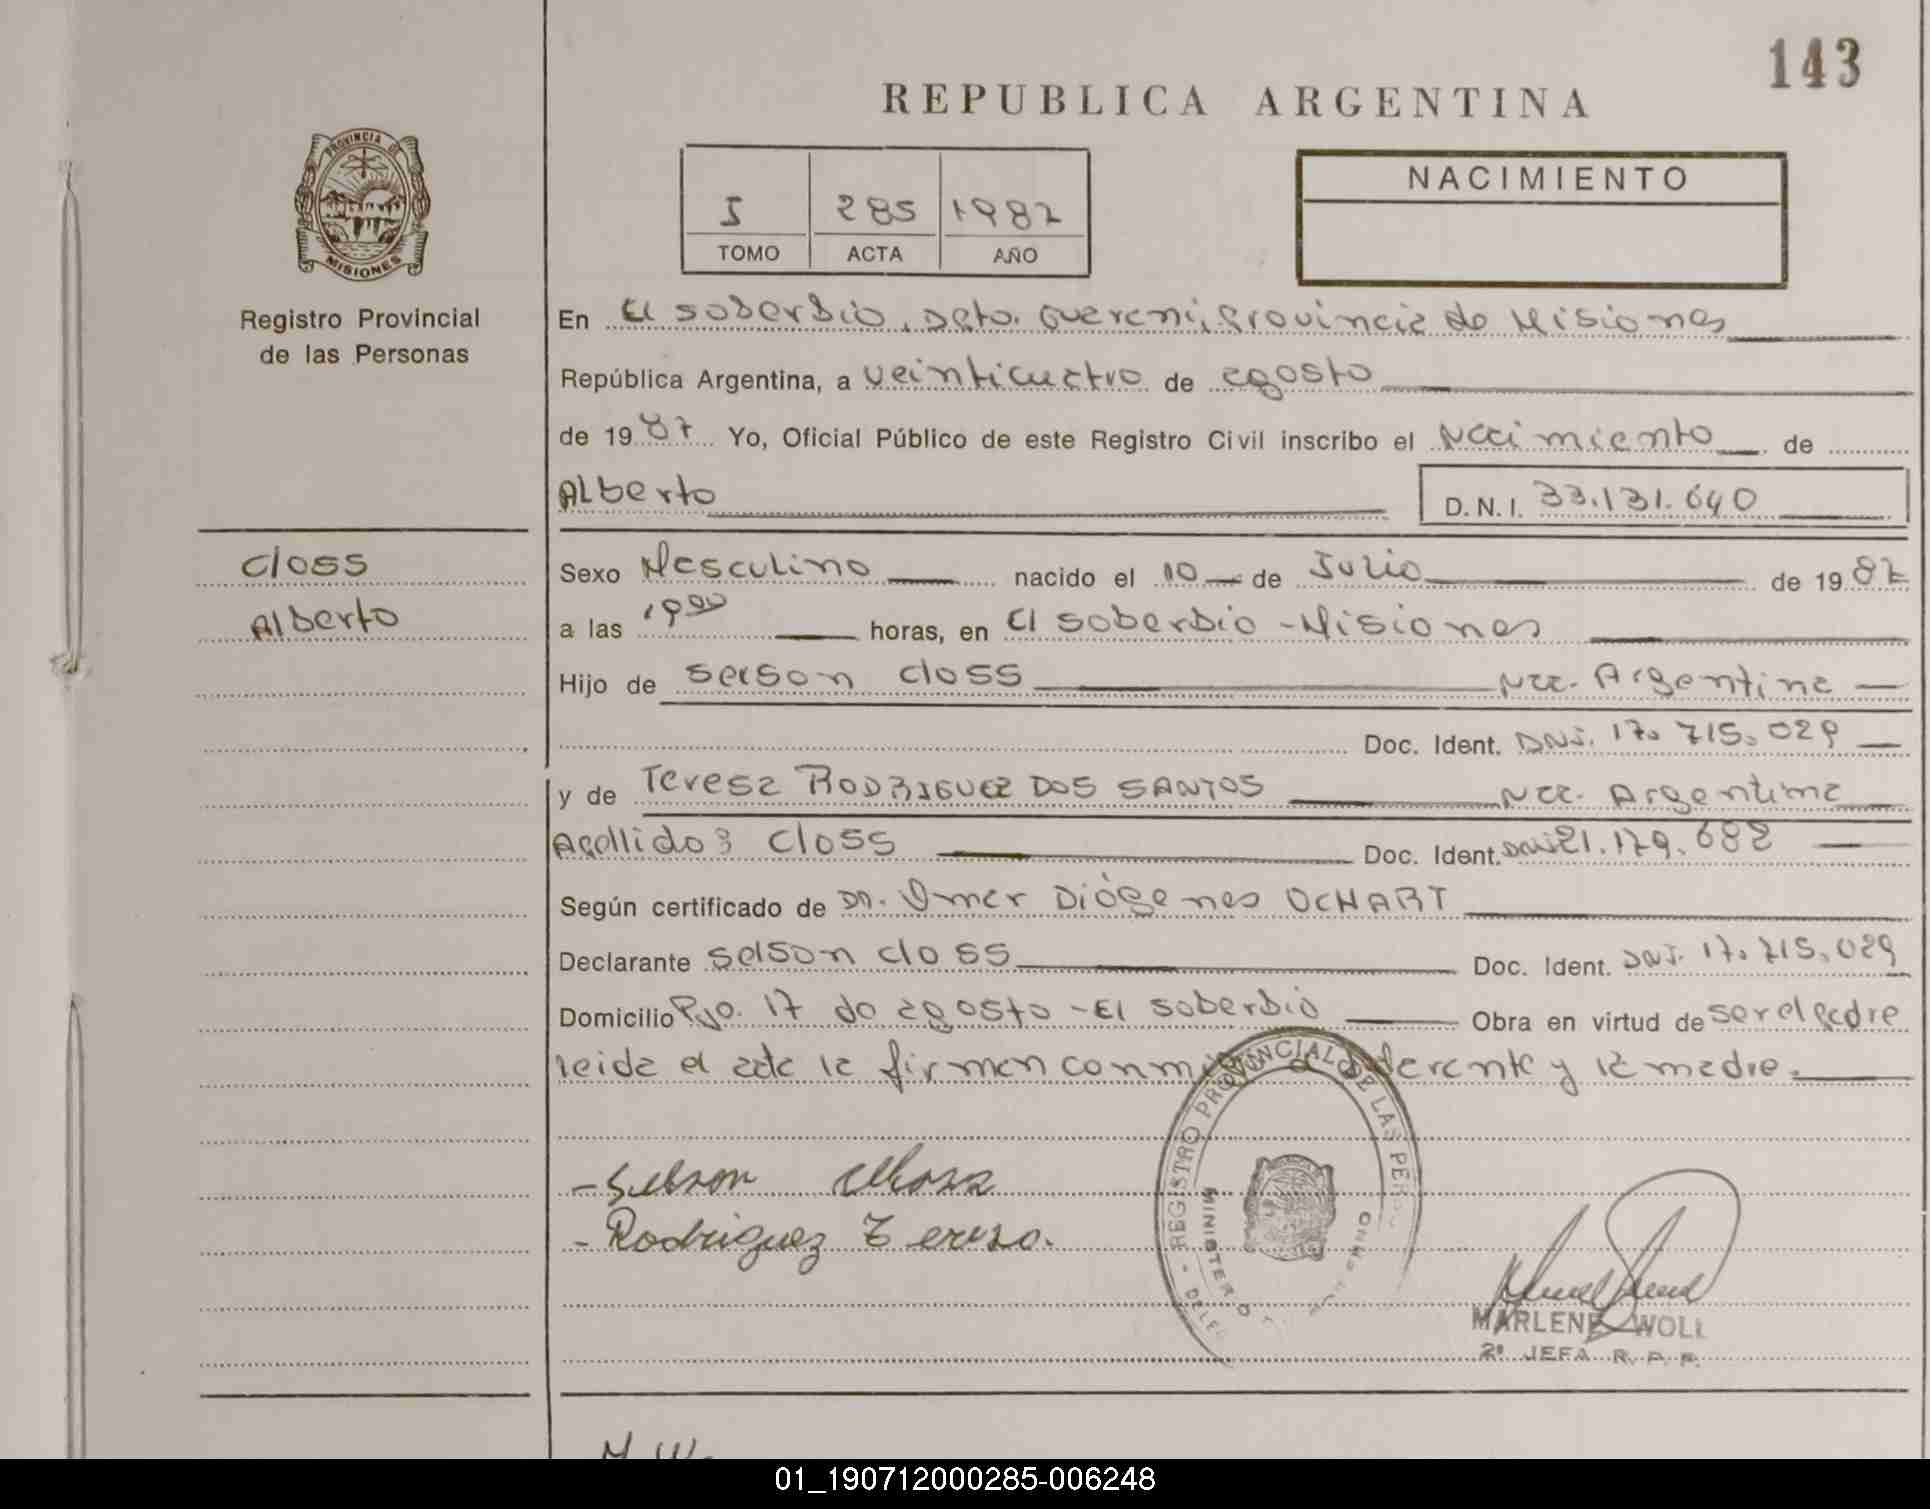 143
REPUBLICA ARGENTINA
PROVINCIA DE
MISIONES
Registro Provincial
de las Personas
I 285 1987
TOMO ACTA AÑO
NACIMIENTO
En El Soberbio, Dpto. Guarani, Provincia de Misiones
República Argentina, a veinticuatro de agosto
de 19 87 Yo, Oficial Público de este Registro Civil inscribo el Nacimiento de
Alberto
D.N.I. 33.131.640
Closs
Alberto
Sexo Masculino nacido el 10 de Julio de 19 87
a las horas, en El Soberbio - Misiones
Hijo de Selson Closs Nac. Argentina
Doc. Ident. DNI. 17.715.029
y de Teresa RODRIGUEZ DOS SANTOS Nac. Argentina
Apellido: Closs Doc. Ident. DNI 21.179.682
Según certificado de Dr. Omar Diógenes OCHART
Declarante Selson Closs Doc. Ident. DNI. 17.715.029
Domicilio Pje. 17 de agosto - El Soberbio Obra en virtud de ser el padre
leida el acta la firman conmigo el declarante y la madre.
- Selson Closs
- Rodriguez Teresa.
REGISTRO PROVINCIAL DE LAS PER
MINISTERIO
DELE
MARLENE WOLL
2º JEFA R. P. P.
M.W.
01_190712000285-006248